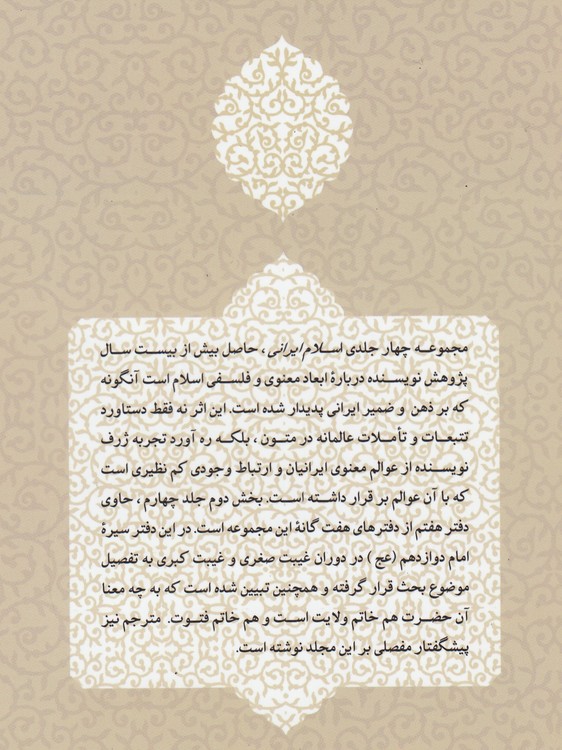 مجموعه چهار جلدی اسلام ایرانی، حاصل بیش از بیست سال
پژوهش نویسنده دربارۀ ابعاد معنوی و فلسفی اسلام است آنگونه
که بر ذهن و ضمیر ایرانی پدیدار شده است. این اثر نه فقط دستاورد
تتبعات و تأملات عالمانه در متون، بلکه ره آورد تجربه ژرف
نویسنده از عوالم معنوی ایرانیان و ارتباط وجودی کم نظیری است
که با آن عوالم بر قرار داشته است. بخش دوم جلد چهارم، حاوی
دفتر هفتم از دفترهای هفت گانۀ این مجموعه است. در این دفتر سیرۀ
امام دوازدهم (عج) در دوران غیبت صغری و غیبت کبری به تفصیل
موضوع بحث قرار گرفته و همچنین تبیین شده است که به چه معنا
آن حضرت هم خاتم ولایت است و هم خاتم فتوت. مترجم نیز
پیشگفتار مفصلی بر این مجلد نوشته است.